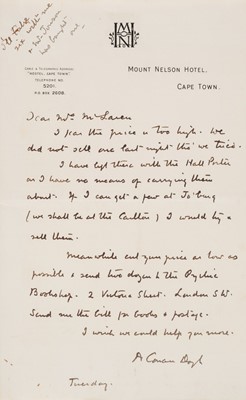 I'll take
six with me
& Mr Jeeson
has bought
one.
M
N
H
CABLE & TELEGRAPHIC ADDRESS,
"HOSTEL, CAPE TOWN."
TELEPHONE
5201.
P.O. BOX 2608.
MOUNT NELSON HOTEL,
CAPE TOWN.
Dear Mrs McLaren
I fear the price is too high. We
did not sell one last night tho' we tried.
I have left these with the Hall Porter
as I have no means of carrying them
about. If I can get a few at Jo'burg
(we shall be at the Carlton) I would try &
sell them.
Meanwhile cut your price as low as
possible & send two dozen to the Psychic
Bookshop. 2 Victoria Street. London S.W.
Send me the bill for books & postage.
I wish we could help you more.
A Conan Doyle
Tuesday.